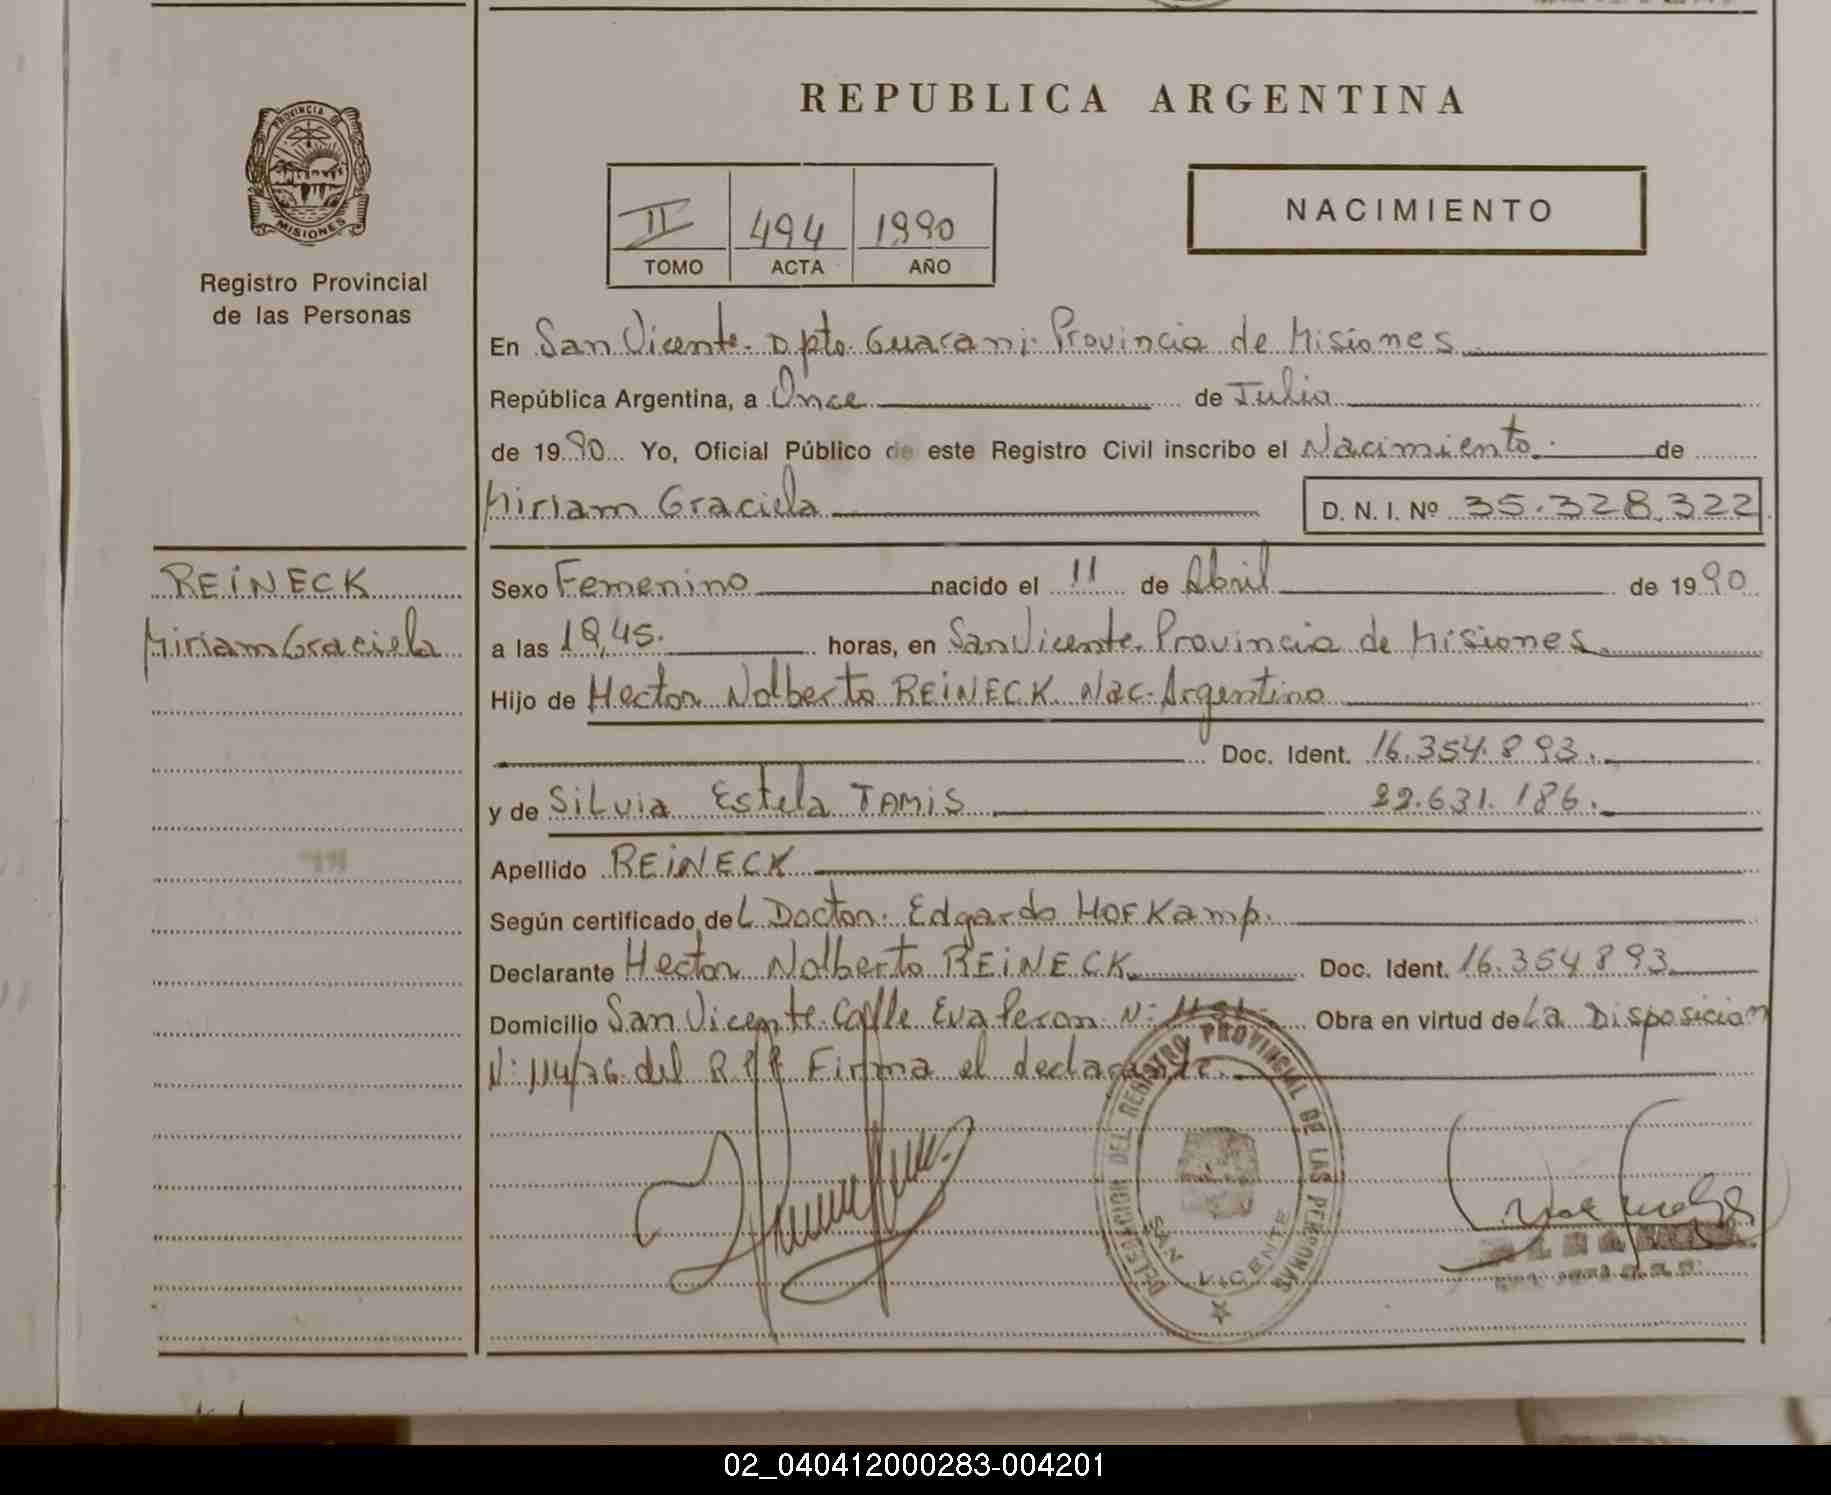 REPUBLICA ARGENTINA
PROVINCIA DE MISIONES
Registro Provincial
de las Personas
II 494 1990
TOMO ACTA AÑO
NACIMIENTO
En San Vicente. Dpto. Guarani. Provincia de Misiones
República Argentina, a Once de Julio
de 1990 Yo, Oficial Público de este Registro Civil inscribo el Nacimiento. de
Miriam Graciela D. N. I. Nº 35.328.322
REINECK
Miriam Graciela
Sexo Femenino nacido el 11 de Abril de 1990
a las 19,45. horas, en San Vicente. Provincia de Misiones
Hijo de Hector Nolberto REINECK. Nac. Argentino
Doc. Ident. 16.354.893.
y de Silvia Estela TAMIS 22.631.186.
Apellido REINECK
Según certificado del Doctor. Edgardo HOFKamp.
Declarante Hector Nolberto REINECK Doc. Ident. 16.354.893
Domicilio San Vicente Calle Eva Peron N: Obra en virtud de La Disposicion
N: 114/76 del R.P.P Firma el declarante.
DELEGACION DEL REGISTRO PROVINCIAL DE LAS PERSONAS
SAN VICENTE
02_040412000283-004201